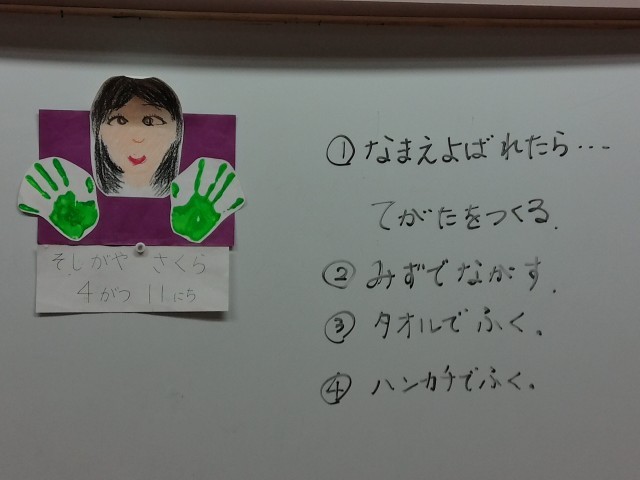 そしがや さくら
4がつ 11にち
①なまえよばれたら・・・
てがたをつくる.
②みずでながす.
③タオルでふく。
④ハンカチでふく。